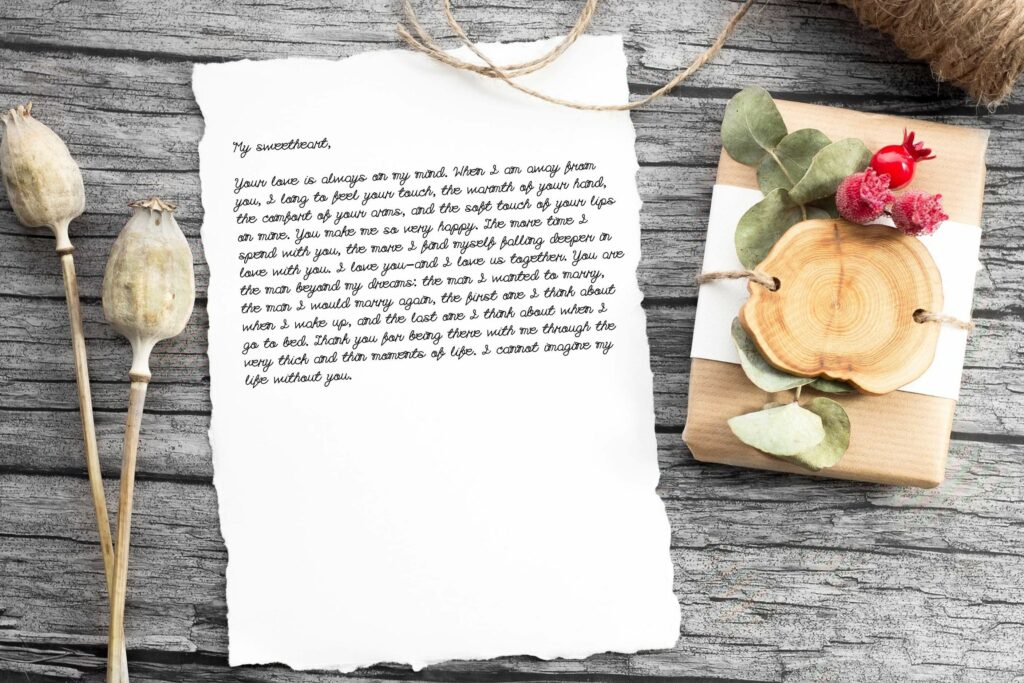 My sweetheart,
Your love is always on my mind. When I am away from
you, I long to feel your touch, the warmth of your hand,
the comfort of your arms, and the soft touch of your lips
on mine. You make me so very happy. The more time I
spend with you, the more I find myself falling deeper in
love with you. I love you—and I love us together. You are
the man beyond my dreams: the man I wanted to marry,
the man I would marry again, the first one I think about
when I wake up, and the last one I think about when I
go to bed. Thank you for being there with me through the
very thick and thin moments of life. I cannot imagine my
life without you.